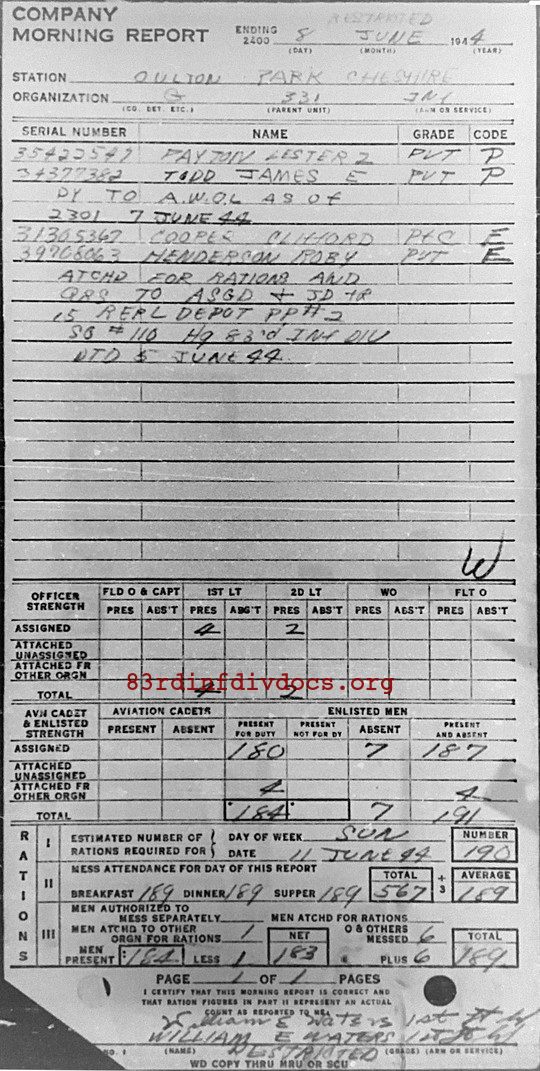 RESTRICTED
COMPANY MORNING REPORT ENDING 2400 8 JUNE 1944
(DAY) (MONTH) (YEAR)
STATION OULTON PARK CHESHIRE
ORGANIZATION G 331 INF
(CO. DET. ETC.) (PARENT UNIT) (ARM OR SERVICE)
SERIAL NUMBER NAME GRADE CODE
35422547 PAYTON LESTER Z PVT P
34377382 TODD JAMES E PVT P
DY TO A.W.O.L AS OF
2301 7 JUNE 44
31305367 COOPER CLIFFORD PFC E
39708063 HENDERSON ROBY PVT E
ATCHD FOR RATIONS AND
QRS TO ASGD & JD
15 REPL DEPOT PP# 2
SO # 110 Hq 83rd INF DIV
DTD 5 JUNE 44
W
OFFICER STRENGTH FLD O & CAPT 1ST LT 2D LT WO FLT O
PRES ABS'T PRES ABS'T PRES ABS'T PRES ABS'T PRES ABS'T
ASSIGNED 4 2
ATTACHED UNASSIGNED
ATTACHED FR OTHER ORGN
TOTAL 4 2
83rdinfdivdocs.org
AVN CADET & ENLISTED STRENGTH AVIATION CADETS ENLISTED MEN
PRESENT ABSENT PRESENT FOR DUTY PRESENT NOT FOR DY ABSENT PRESENT AND ABSENT
ASSIGNED 180 7 187
ATTACHED UNASSIGNED
ATTACHED FR OTHER ORGN 4 4
TOTAL 184 7 191
RATIONS
I ESTIMATED NUMBER OF RATIONS REQUIRED FOR DAY OF WEEK SUN NUMBER
DATE 11 JUNE 44 190
II MESS ATTENDANCE FOR DAY OF THIS REPORT TOTAL ÷ 3 AVERAGE
BREAKFAST 189 DINNER 189 SUPPER 189 567 189
III MEN AUTHORIZED TO MESS SEPARATELY MEN ATCHD FOR RATIONS
MEN ATCHD TO OTHER ORGN FOR RATIONS 1 NET O & OTHERS MESSED 6 TOTAL
MEN PRESENT 184 LESS 1 183 PLUS 6 189
PAGE 1 OF 1 PAGES
I CERTIFY THAT THIS MORNING REPORT IS CORRECT AND
THAT RATION FIGURES IN PART II REPRESENT AN ACTUAL
COUNT AS REPORTED TO ME.
William E Waters 1st Lt
WILLIAM E WATERS 1st Lt
NO. 1 (NAME) RESTRICTED (GRADE) (ARM OR SERVICE)
WD COPY THRU MRU OR SCU